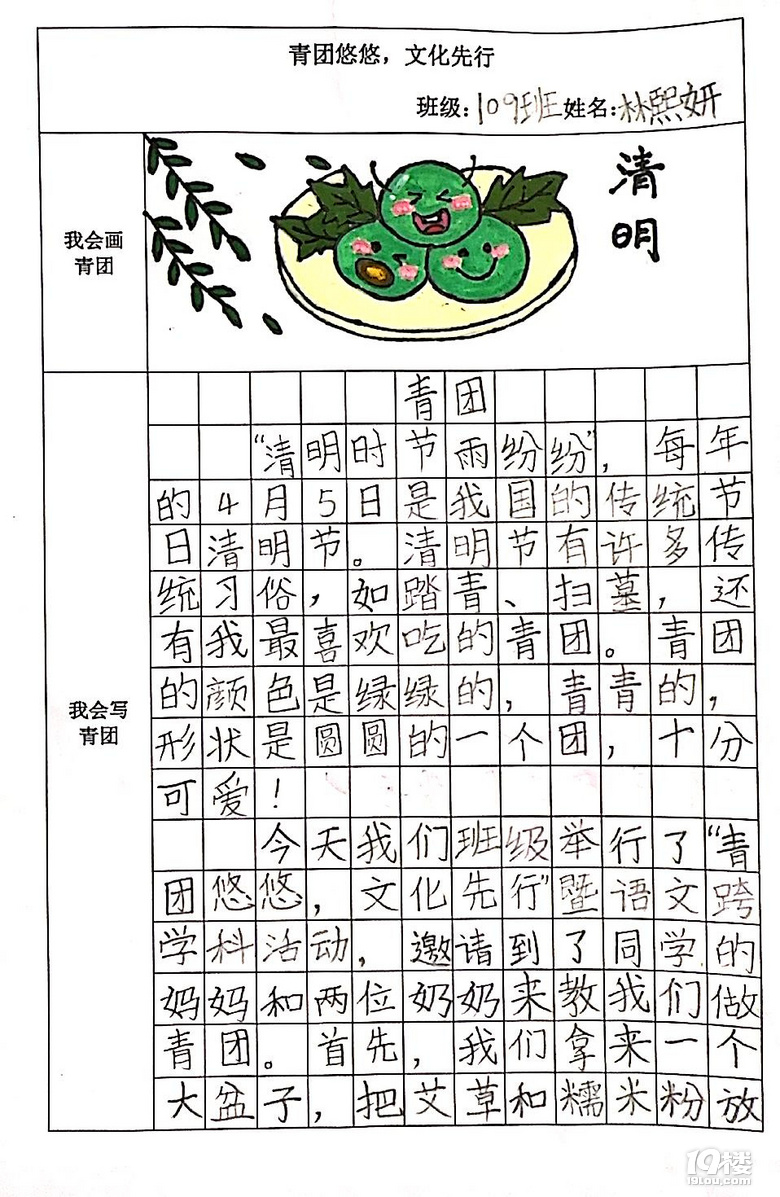 青团悠悠，文化先行
班级：109班姓名：林熙妍
我会画
青团
清
明
我会写
青团
青团
“清明时节雨纷纷”，每年
的4月5日是我国的传统节
日清明节。清明节有许多传
统习俗，如踏青、扫墓，还
有我最喜欢吃的青团。青团
的颜色是绿绿的，青青的，
形状是圆圆的一个团，十分
可爱！
今天我们班级举行了“青
团悠悠，文化先行”暨语文跨
学科活动，邀请到了同学的
妈妈和两位奶奶来教我们做
青团。首先，我们拿来一个
大盆子，把艾草和糯米粉放
19楼
19lou.com